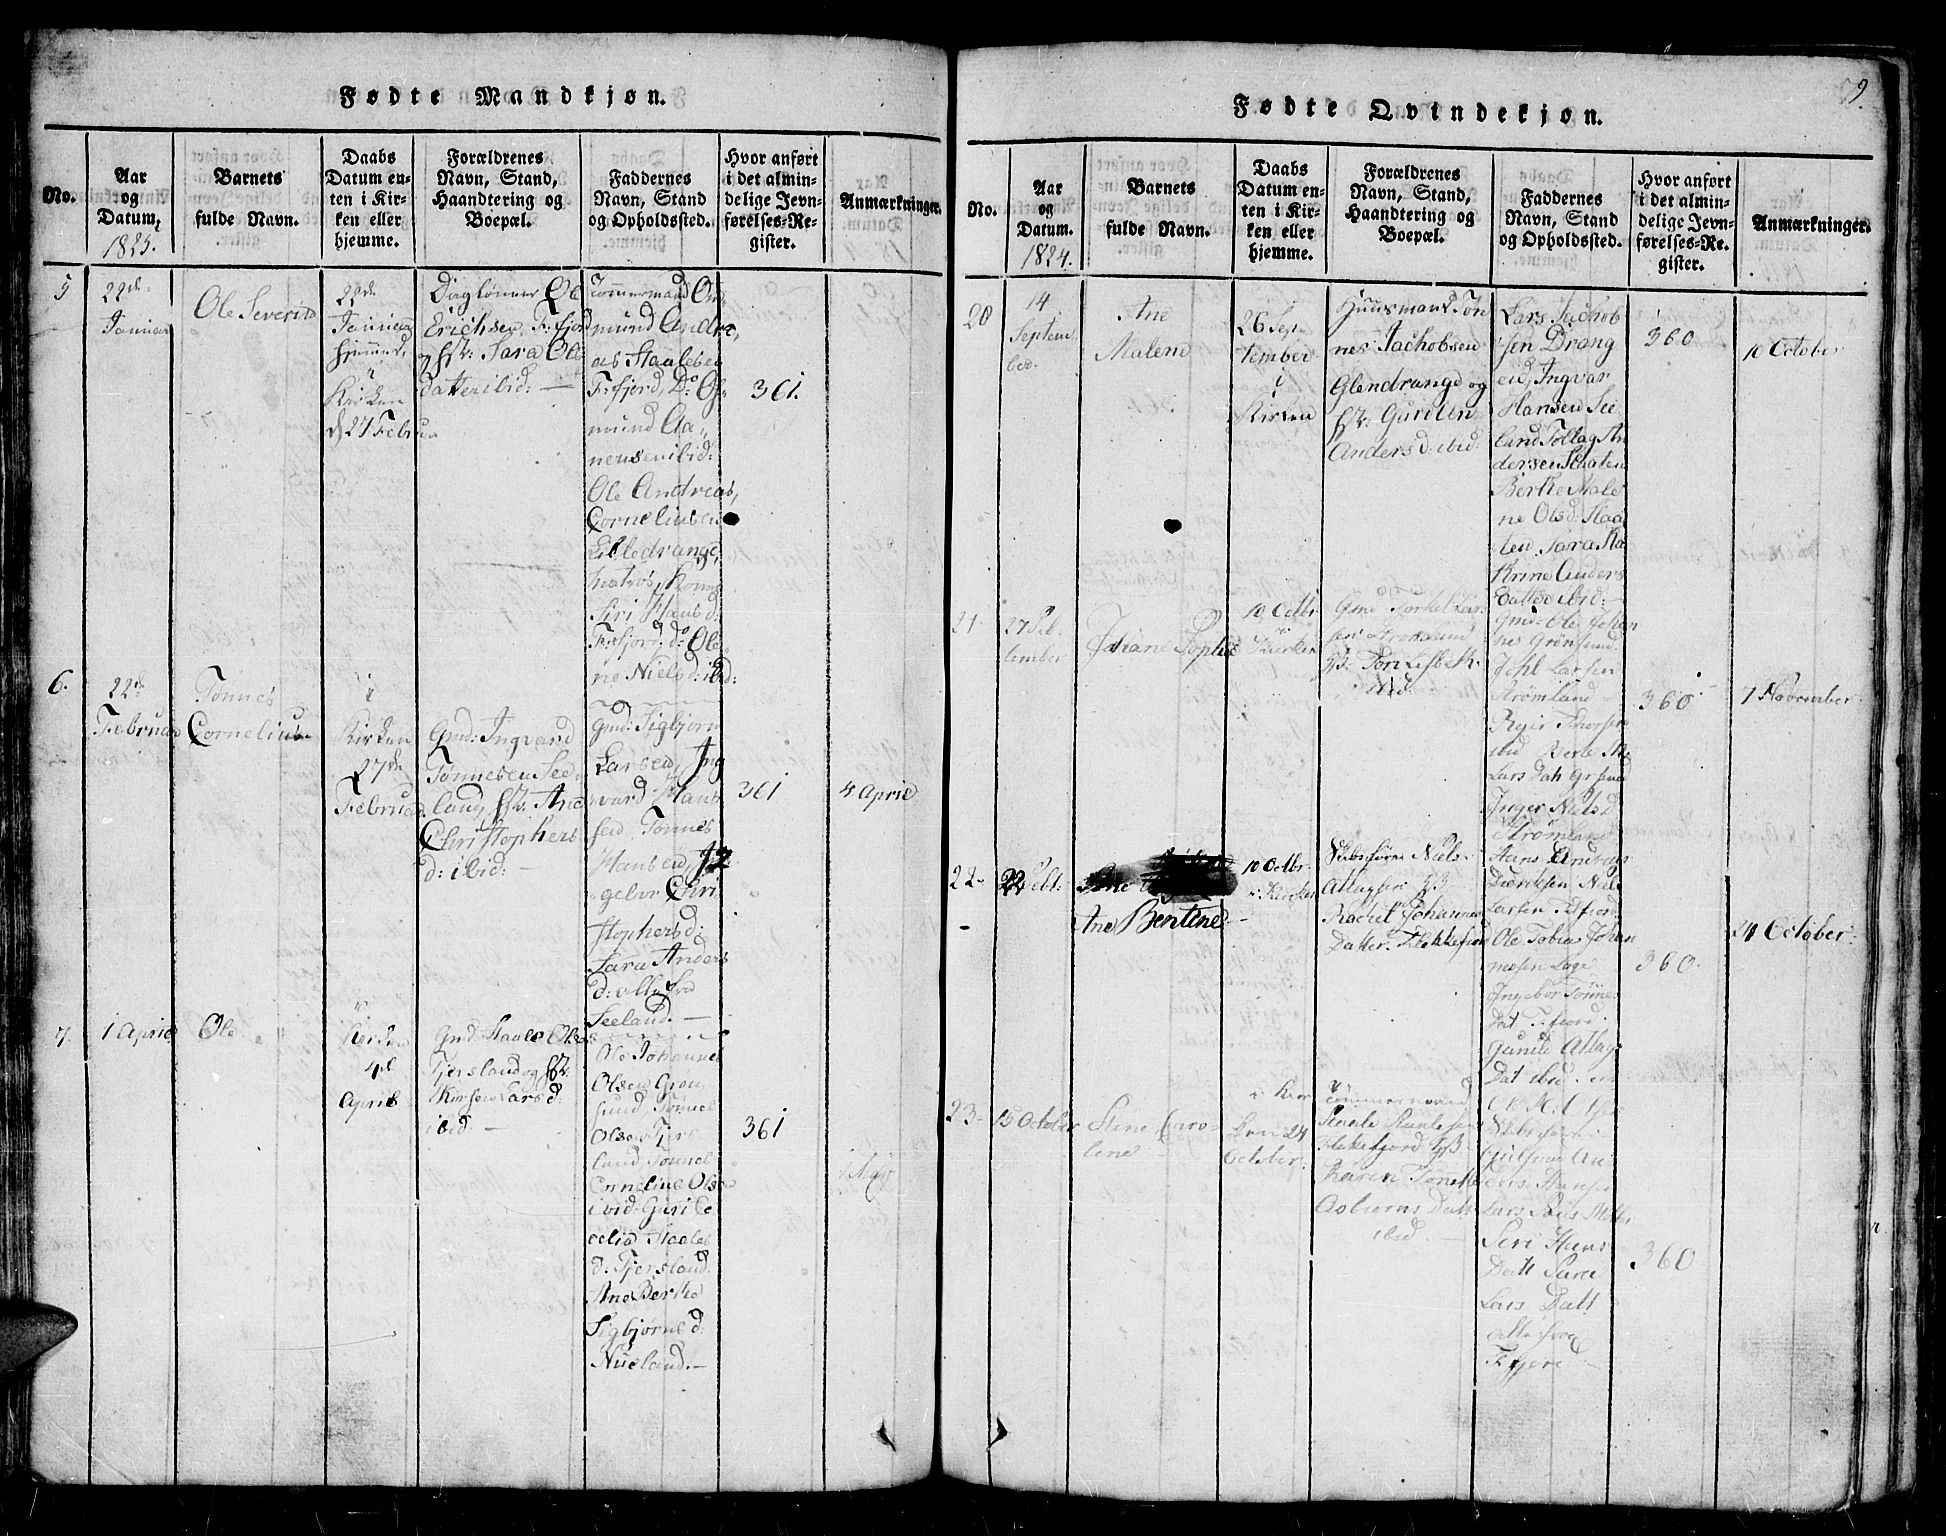 Fødte Mandkjøn.
No.
Aar
og
Datum,
1825.
Barnets
fulde Navn.
Daabs
Datum en-
ten i Kir-
ken eller
hjemme.
Forældrenes
Navn, Stand,
Haandtering og
Boepæl.
Faddernes
Navn, Stand
og Opholdssted.
Hvor anført
i det almin-
delige Jevn-
førelses-Re-
gister.
Anmærkninger.
5
22de
Januar
Ole Severin
22de
Januar
hjemme,
i
Kirken
d 27 Februar
Daglønner Ole
Erichsen F:fjord
og hst: Sara Ole
datter ibid: —
Tømmermand
mund Andre
F:fjord, Do
mund Aa
nensen ibid:
Ole Andreas,
Corneliusen
Lilledrange,
Siri Hansd:
F:fjord, do Ole
ne Nielsd: ibid:
361.
6.
22de
Februar
Tønnes
Cornelius
i
Kirken
27de
Februar
Gmd: Ingvard
Tønnesen See
land, hst: Ane
Christophers
d: ibid: —
Gmd: Sigbjørn
Larsen, Ing
vard Hans
sen Tønnes
Hansen, In
gebor Chri
stophersd:
Sara Anders
d: alle fra
Seeland. —
361
4 April
7.
1 April
Ole
i
Kirken
4de
April
Gmd: Staale Olse
Tjersland og hst:
Kirsen Larsd:
ibid: —
Ole Johannes
Olsen Grøn
sund, Tønnes
Olsen Tjers
land, Tønnes
Cornelius Olse
ibid: Guri Ce
celia Staales
d: Tjersland
Ane Berthe
Sigbjørns d:
Nueland. —
361
Fødte Qvindekjøn.
9.
No.
Aar
og
Datum.
1824.
Barnets
fulde Navn.
Daabs
Datum en-
ten i Kir-
ken eller
hjemme.
Forældrenes
Navn, Stand,
Haandtering og
Boepæl.
Faddernes
Navn, Stand
og Opholdssted.
Hvor anført
i det almin-
delige Jevn-
førelses-Re-
gister.
Anmærkninger.
20
14
Septem
ber.
Ane
Malene
26 Sep
tember
i
Kirken
Huusmand Tøn
nes Jachobsen
Glendrange og
hst: Guri
Anders d: ibid:
Lars Jachob
sen Drang
eid, Ingvar
Hansen See
land Tollag An
dersen Staaten
Berthe Male
ne Olsd: Staa
ten, Sara Ka
trine Anders
datter ibid: —
360
10 October
21
27 Sep
tember
Johane Sophie
10 Octbr
i Kirken
Gmd Torkel Lar
sen Strømland
hst: Tori Lisbeth
ibid.
Gmd: Ole Johan
nes Grønsund
Larsen
Strømland
ibid
Inger Niels d
Strømland
360
7 November
22
22 Sebt:
Ane Bentine
10 Octbr.
i Kirken
Skibsfører Niels
Atlagsen
Rachel Johannes
Datter. Flekkefiord
Hans Andreas
Dideriksen Niels
Larsen F:fiord
Ole Tobias Johan
nessen
Ingebor Tønnes
Dat F:fiord
Gunild Atlags
Dat ibid
360.
24 October
23
15 October
Stine Caro-
line
i Kir
ken 24
October
Tømmermand
Staale Staalesen
Flekefjord
Karen Tonette
Asbiorns Datt
ibid
Skibsfører
Gulsmed An
ders Hansen
Lars
Siri Hans
Datt Sara
Lars Datt
alle fra
F:fjord
360